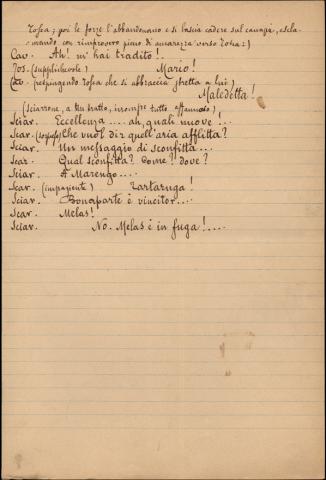 Tosca; poi le forze l'abbandonano e si lascia cadere sul canapè, escla-
mando con rimprovero pieno di amarezza verso Tosca:)
Cav. Ah! m'hai tradito!..
Tos. (supplichevole) Mario!
Cav. (respingendo Tosca che si abbraccia stretta a lui)
Maledetta!
(Sciarrone, a un tratto, irrompe tutto affannoso)
Sciar. Eccellenza .... ah, quali nuove!...
Scar. (sorpreso) Che vuol dir quell'aria afflitta?
Sciar. Un messaggio di sconfitta...
Scar. Qual sconfitta? Come? Dove?
Sciar. A Marengo....
Scar. (impaziente) Tartaruga!
Sciar. Bonaparte è vincitor....
Scar. Melas!
Sciar. No. Melas è in fuga!....